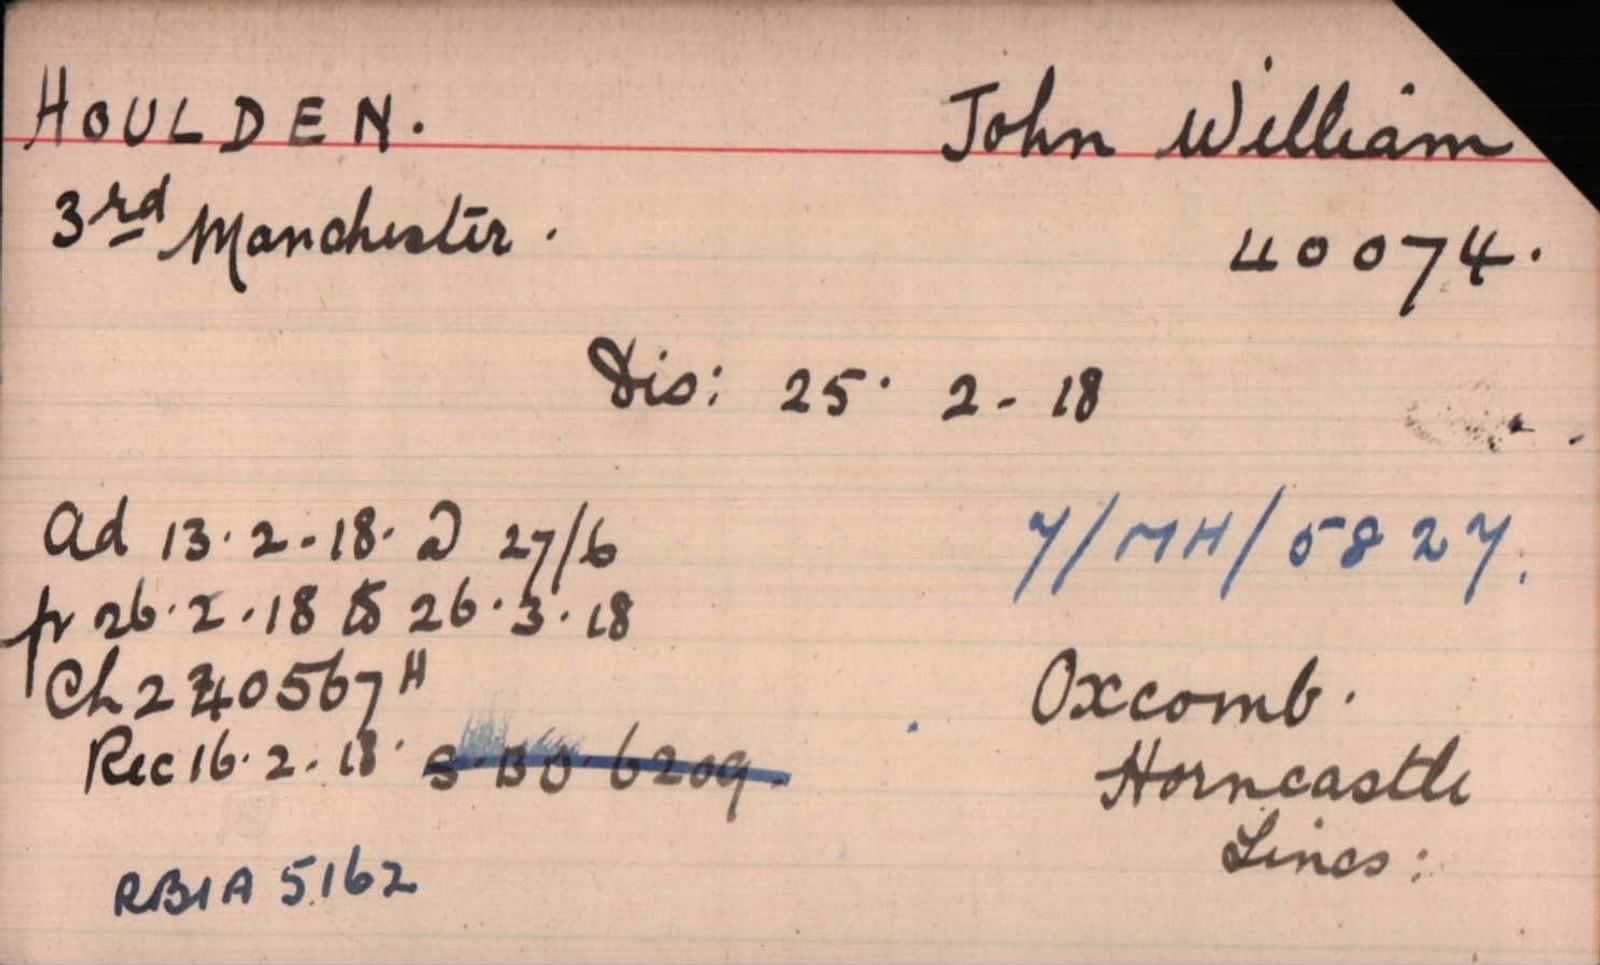 HOULDEN. John William
3rd Manchester. 40074.
Dis: 25. 2-18
Ad 13.2-18. @ 27/6 7/MH/5827.
fr 26.2.18 to 26.3.18
Ch 240567 H Oxcomb.
Rec 16.2.18. S.BO.6209. Horncastle
Lincs:
RB1A 5162